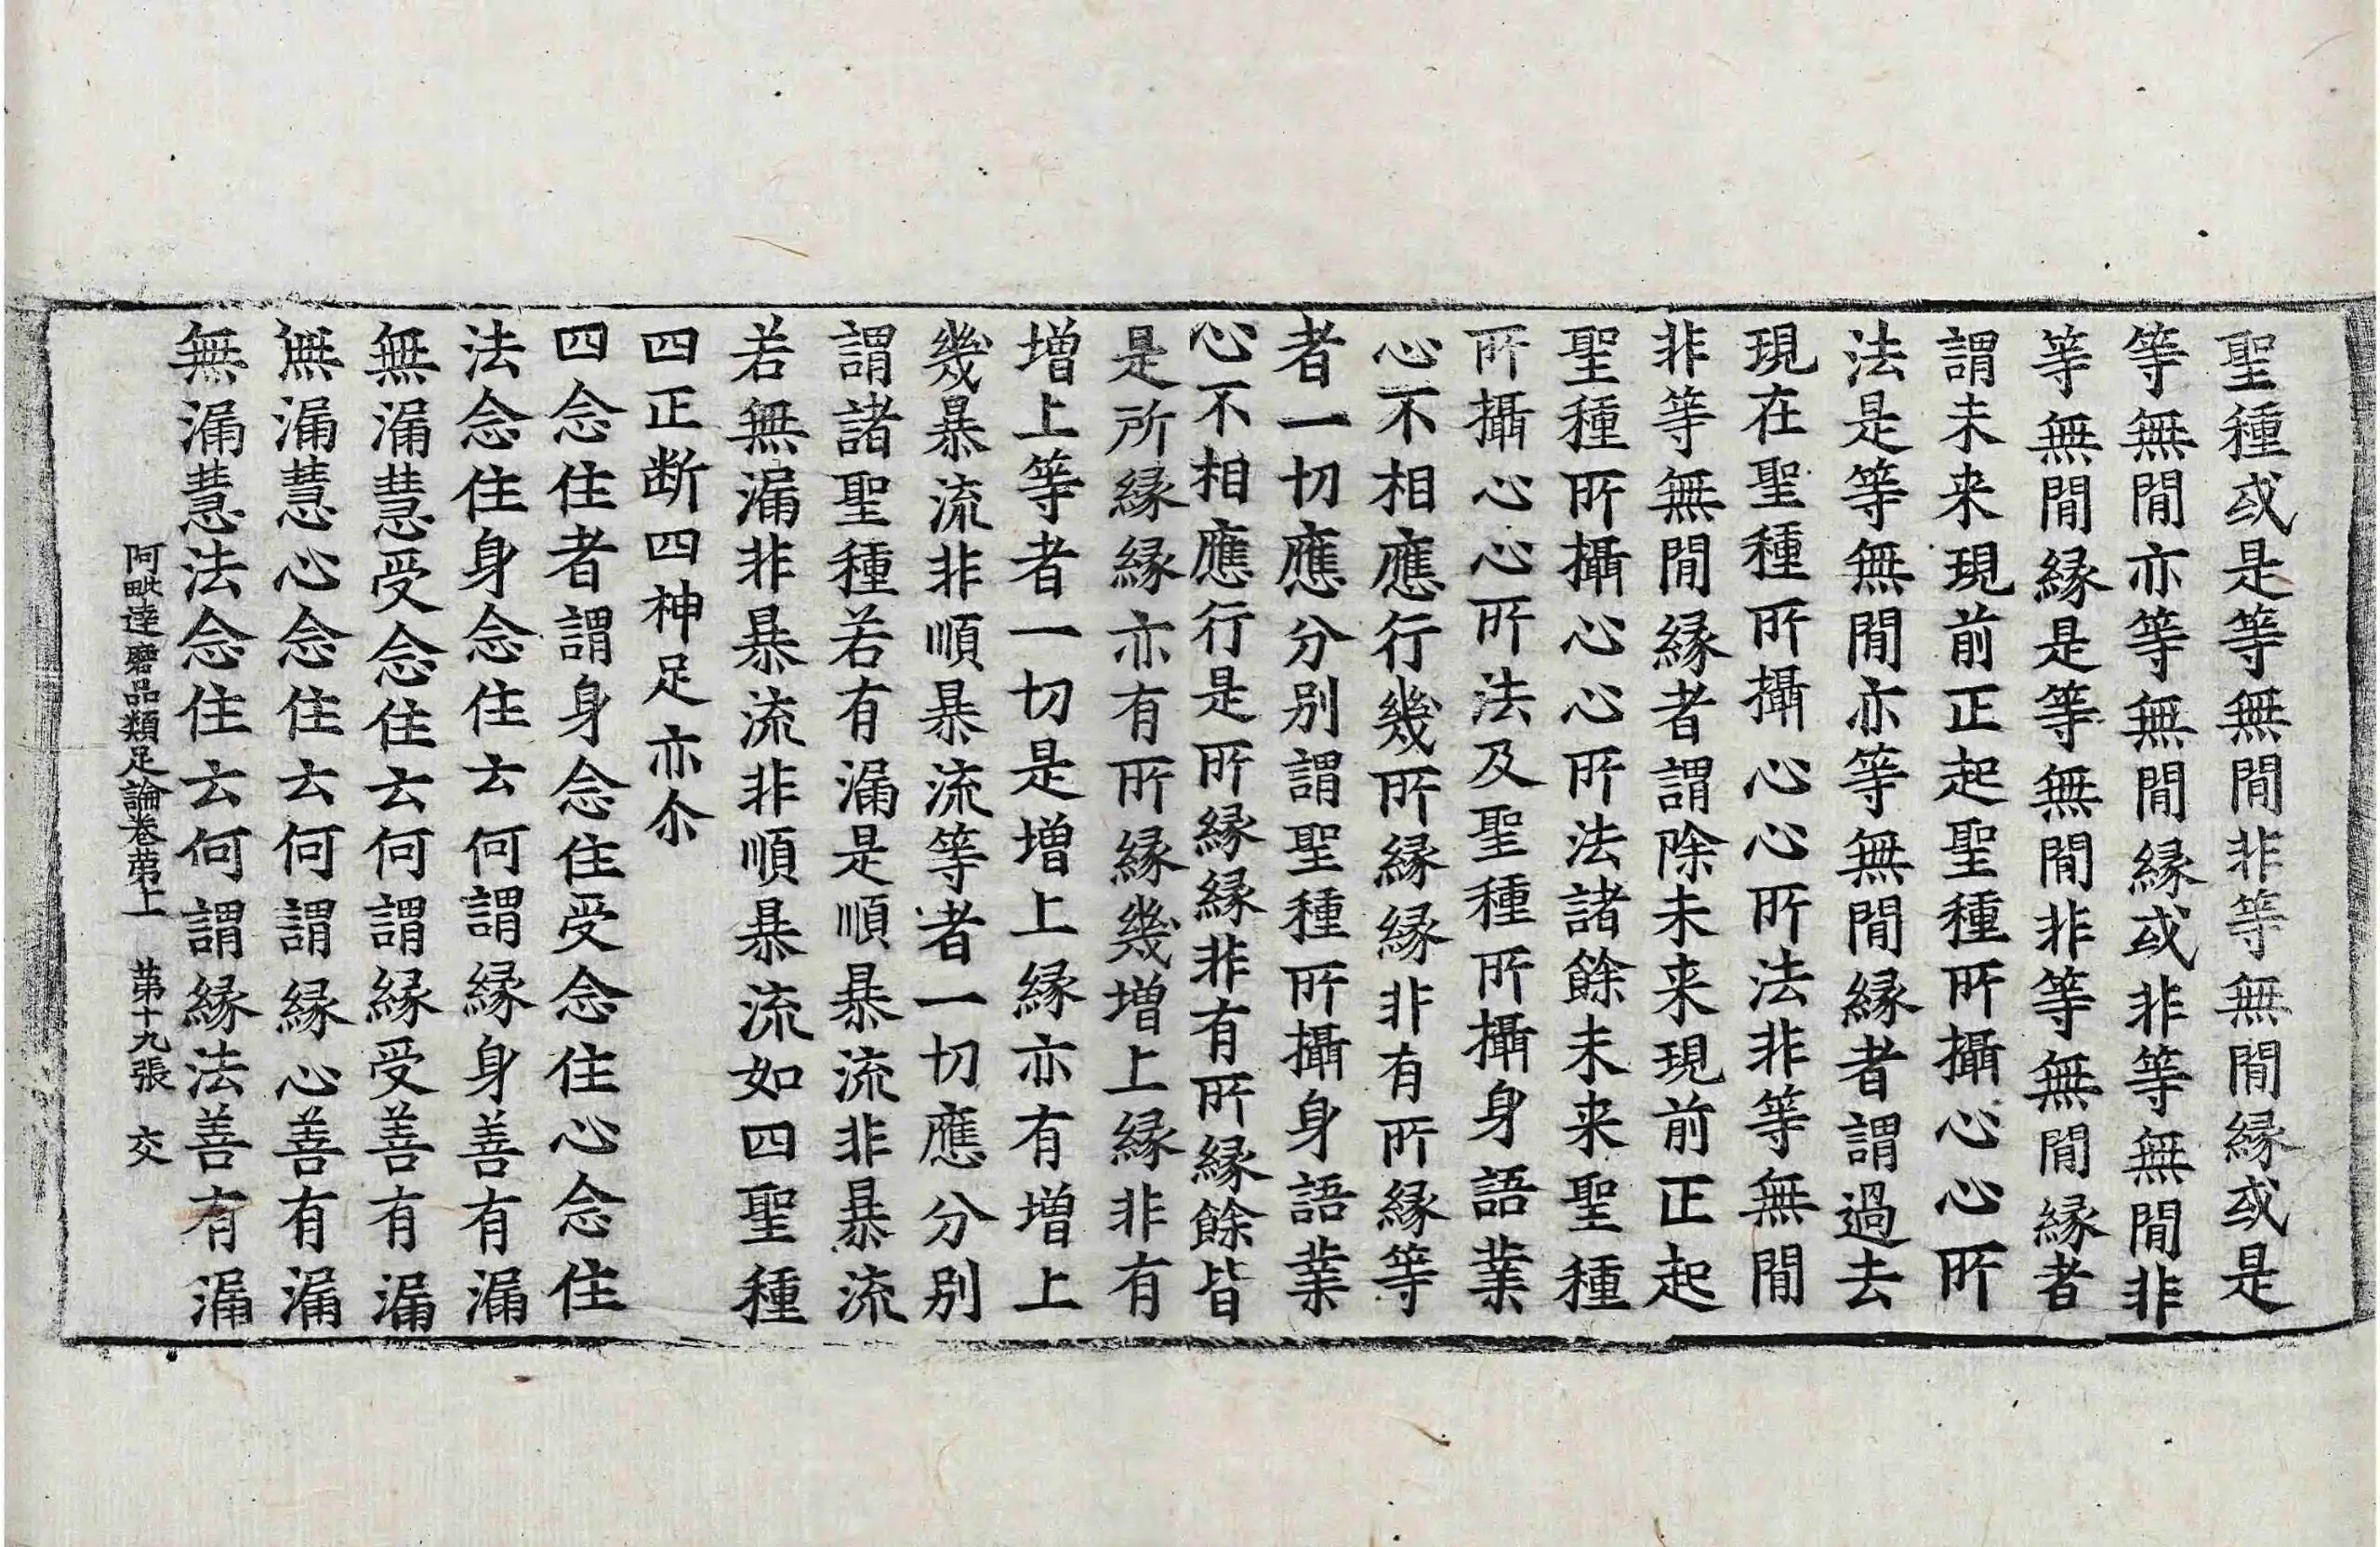 聖種或是等無間非等無間縁或是
等無間亦等無間縁或非等無間非
等無間縁是等無間非等無間縁者
謂未来現前正起聖種所攝心心所
法是等無間亦等無間縁者謂過去
現在聖種所攝心心所法非等無間
非等無間縁者謂除未来現前正起
聖種所攝心心所法諸餘未来聖種
所攝心心所法及聖種所攝身語業
心不相應行幾所縁縁非有所縁等
者一切應分别謂聖種所攝身語業
心不相應行是所縁縁非有所縁餘皆
是所縁縁亦有所縁幾增上縁非有
增上等者一切是增上縁亦有增上
幾暴流非順暴流等者一切應分别
謂諸聖種若有漏是順暴流非暴流
若無漏非暴流非順暴流如四聖種
四正断四神足亦尒
四念住者謂身念住受念住心念住
法念住身念住云何謂縁身善有漏
無漏慧受念住云何謂縁受善有漏
無漏慧心念住云何謂縁心善有漏
無漏慧法念住云何謂縁法善有漏
阿毗達磨品類足論卷第上 第十九張 交